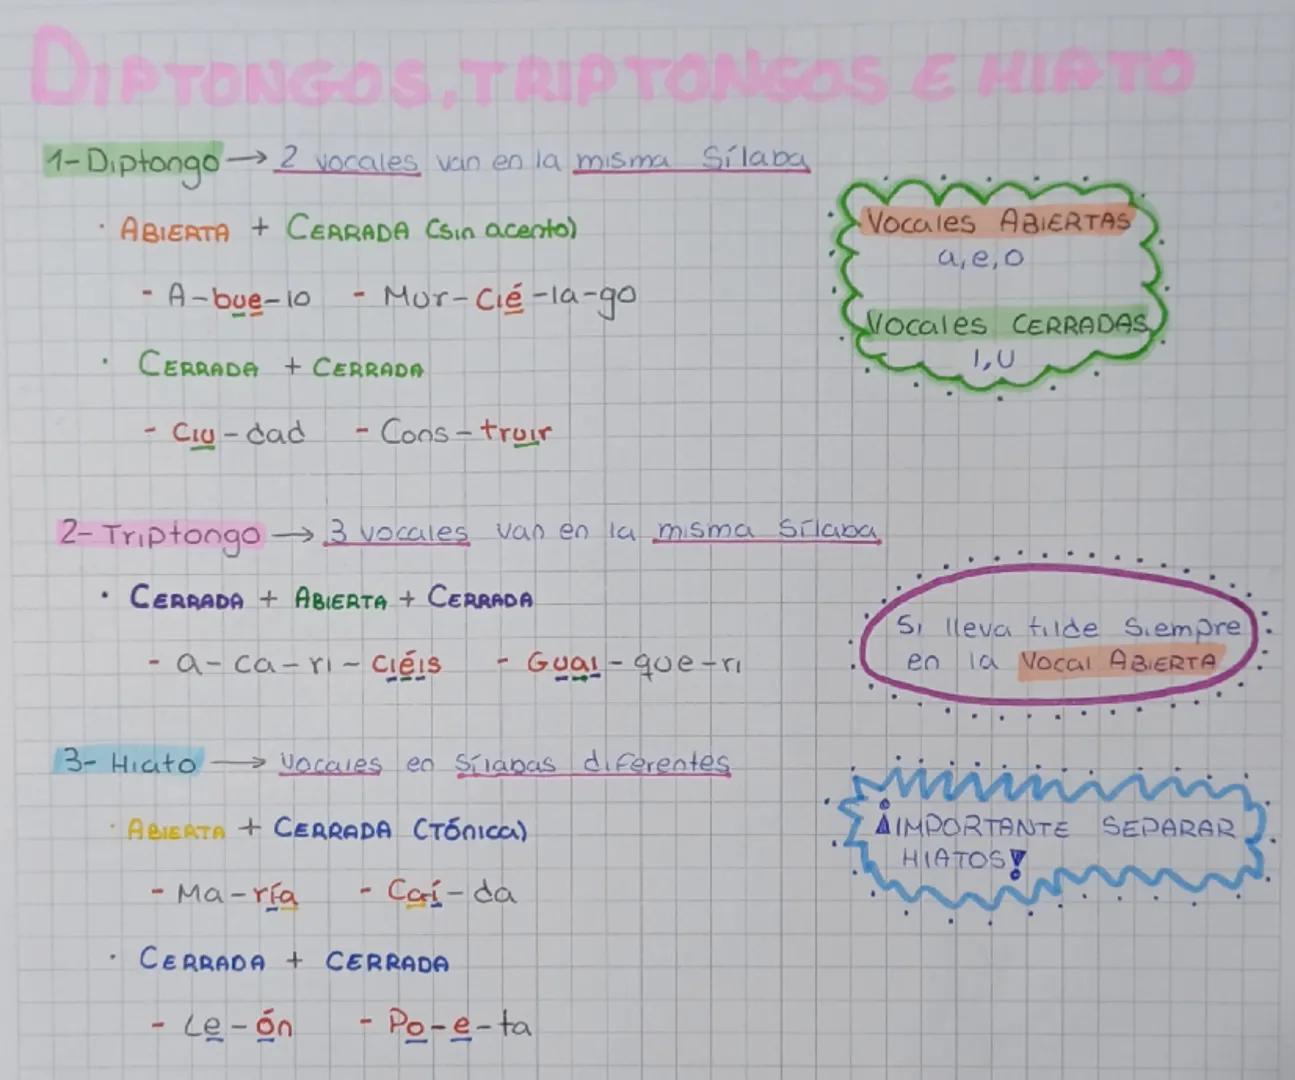 DIPTONGOS, TRIPTONGOS E HIATO
1-Diptongo → 2 vocales van en la misma Sílaba
· ABIERTA + CERRADA (sin acento)
- A-bue-lo - Mur-Cié-la-go
· CERRADA + CERRADA
- Ciu-dad - Cons-truir
Vocales ABIERTAS
a, e, o
Vocales CERRADAS
I, U
2- Triptongo → 3 vocales van en la misma Sílaba
· CERRADA + ABIERTA + CERRADA
- a-ca-ri-ciéis - Guai-que-ri
Si lleva tilde siempre
en la Vocal ABIERTA
3- Hiato → Vocales en Sílabas diferentes
· ABIERTA + CERRADA (TÓnica)
- Ma-ría - Caí-da
· CERRADA + CERRADA
- Le-ón - Po-e-ta
¡IMPORTANTE SEPARAR
HIATOS!